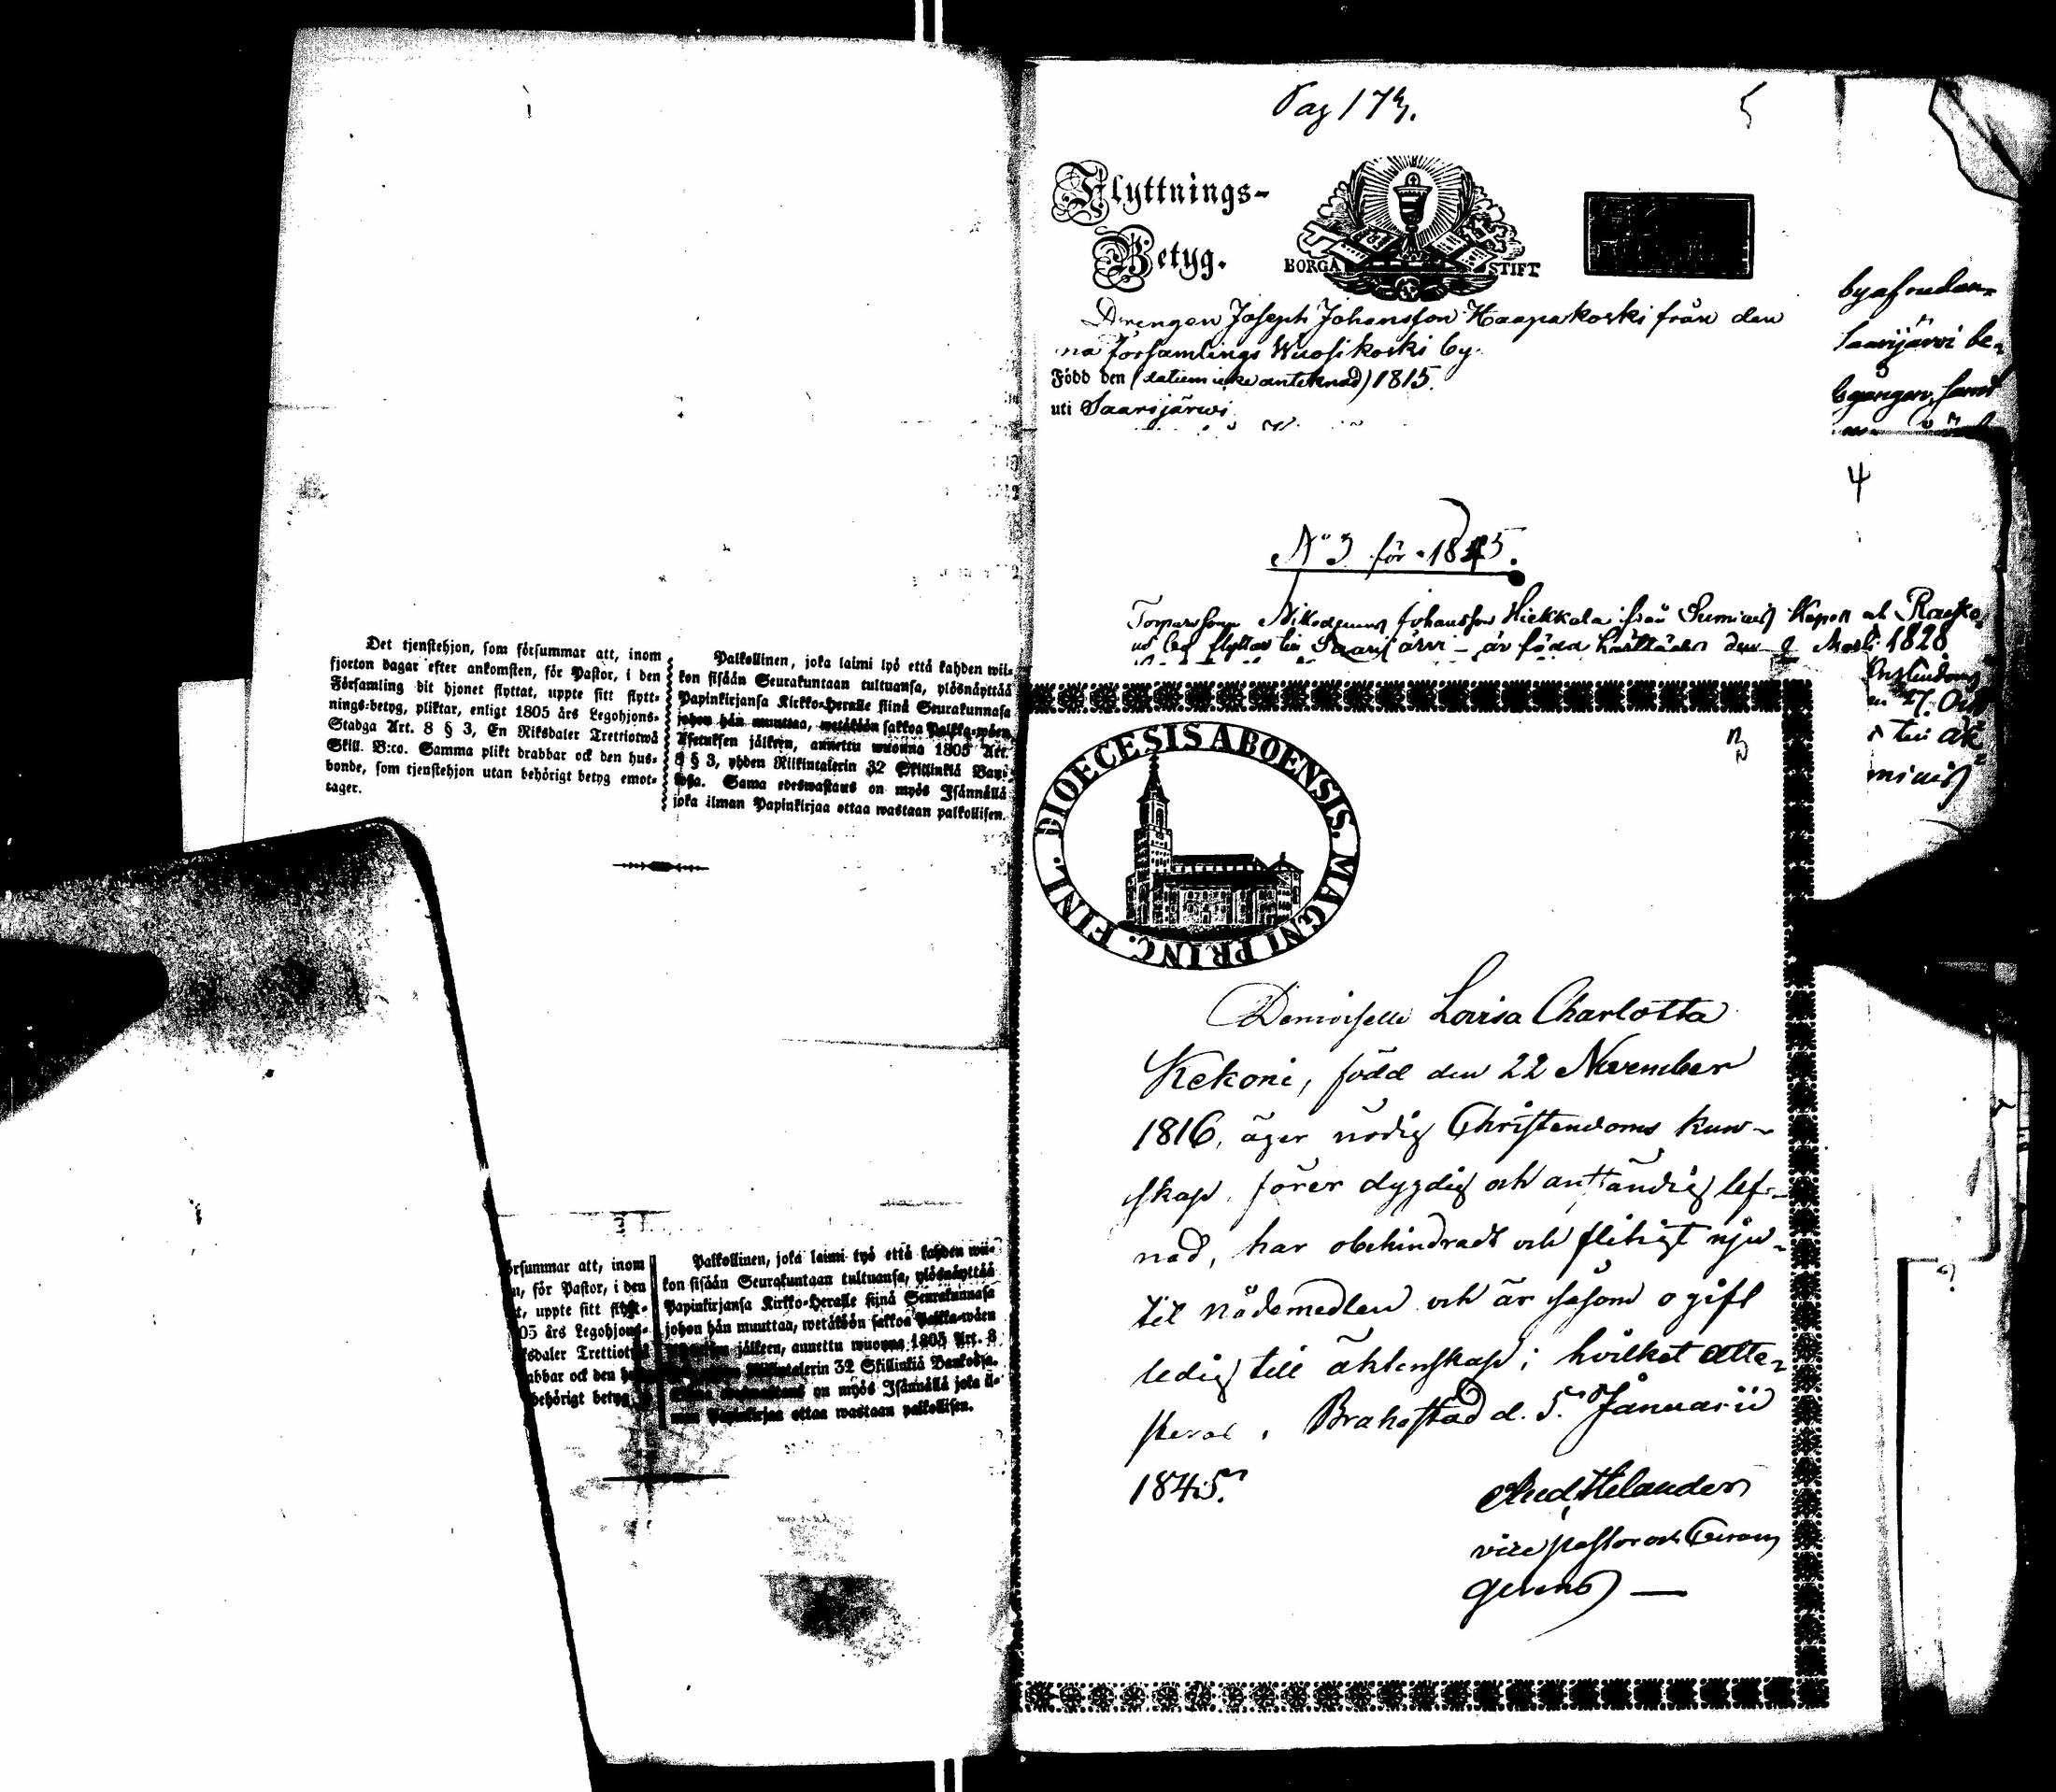 Det tjenstehjon, som försummar att, inom
fjorton dagar efter ankomsten, för Pastor, i den
Församling dit hjonet flyttat, uppte sitt flytt-
nings-betyg, pliktar, enligt 1805 års Legohjons-
Stadga Art. 8 § 3, En Riksdaler Trettiotwå
Skill. B:co. Samma plikt drabbar ock den hus-
bonde, som tjenstehjon utan behörigt betyg emot-
tager.
Palkollinen, joka laimi lyö että kahden wii-
kon sisään Seurakuntaan tultuansa, ylösnäyttää
Papinkirjansa Kirkko-Heralle siinä Seurakunnasa
johon hän muuttaa, wetäkään sakkoa Palkka-wäen
Asetuksen jälkeen, annettu wuonna 1805 Art.
8 § 3, yhden Riikintalerin 32 Skillinkiä Ban-
Sama edeswastaus on myös Isännällä
joka ilman Papinkirjaa ottaa wastaan palkollisen.
örsummar att, inom
n, för Pastor, i den
t, uppte sitt flytt-
05 års Legohjons-
ksdaler Trettiotwå
abbar ock den
behörigt betyg
Palkollinen, joka laimi lyö että kahden wii-
kon sisään Seurakuntaan tultuansa, ylösnäyttää
Papinkirjansa Kirkko-Heralle siinä Seurakunnasa
johon hän muuttaa, wetäkään sakkoa Palkka-wäen
jälkeen, annettu wuonna 1805 Art. 8
Riikintalerin 32 Skillinkiä Bankosa.
on myös Isännällä joka il-
man Papinkirjaa ottaa wastaan palkollisen.
Pag 173.
5
Flyttnings-
Betyg.
BORGÅ STIFT
Drengen Joseph Johansson Haapakoski från den
na församlings Wuosikoski by.
Född den (datum icke antecknad) 1815.
uti Saarijärwi
Saarijärvi be-
4
No 3 för 1845.
Nikodemus Johansson Hiekkala från Sumiais Kapell och
by flyttar till Saarijärvi - är född härstädes den 2 1828
3
DIOECESIS ABOENSIS. MAGNI PRINC. FINL.
Demoiselle Lovisa Charlotta
Kekoni, född den 22 November
1816, äger nödig Christendoms kun-
skap, förer dygdig och anständig lef-
nad, har obehindradt och flitigt njw-
tit nådemedlen och är såsom ogift
ledig till äktenskap; hvilket atte-
steras. Brahestad d. 5 Januarii
1845.
And. Helander
vice pastor och Curam
gerens